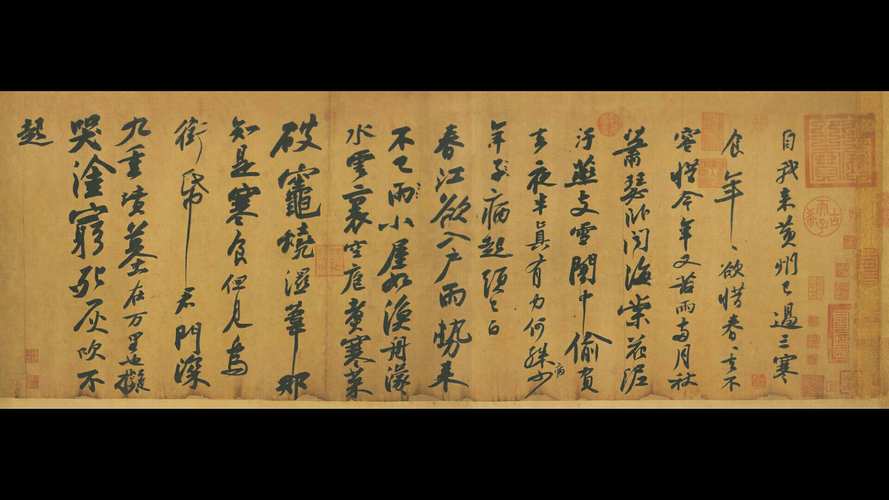 自我来黄州已過三寒
食年〻欲惜春〻去不
容惜今年又苦雨兩月秋
蕭瑟卧聞海棠花泥
汙燕支雪闇中偷負
去夜半真有力何殊少
病
年子病起頭已白
春江欲入户雨勢来
不已雨小屋如漁舟濛〻
水雲裏空庖煮寒菜
破竈燒濕葦那
知是寒食但見烏
銜帋君門深
九重墳墓在万里也擬
哭塗窮死灰吹不
起